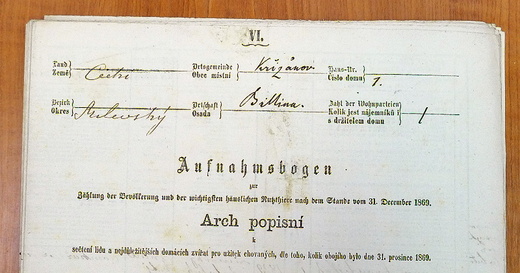 VI.
Land Země Čechi Ortsgemeinde Obce místní Křižanov Haus-Nr. Číslo domu 1.
Bezirk Okres Milevský Ortschaft Osada Billina. Zahl der Wohnparteien Kolik jest nájemníků s držitelem domu 1
Aufnahmsbogen
zur
Zählung der Bevölkerung und der wichtigsten häuslichen Nutzthiere nach dem Stande vom 31. December 1869.
Arch popisní
k
sečtení lidu a nejdůležitějších domácích zvířat pro užitek chovaných, dle toho, kolik obojího bylo dne 31. prosince 1869.